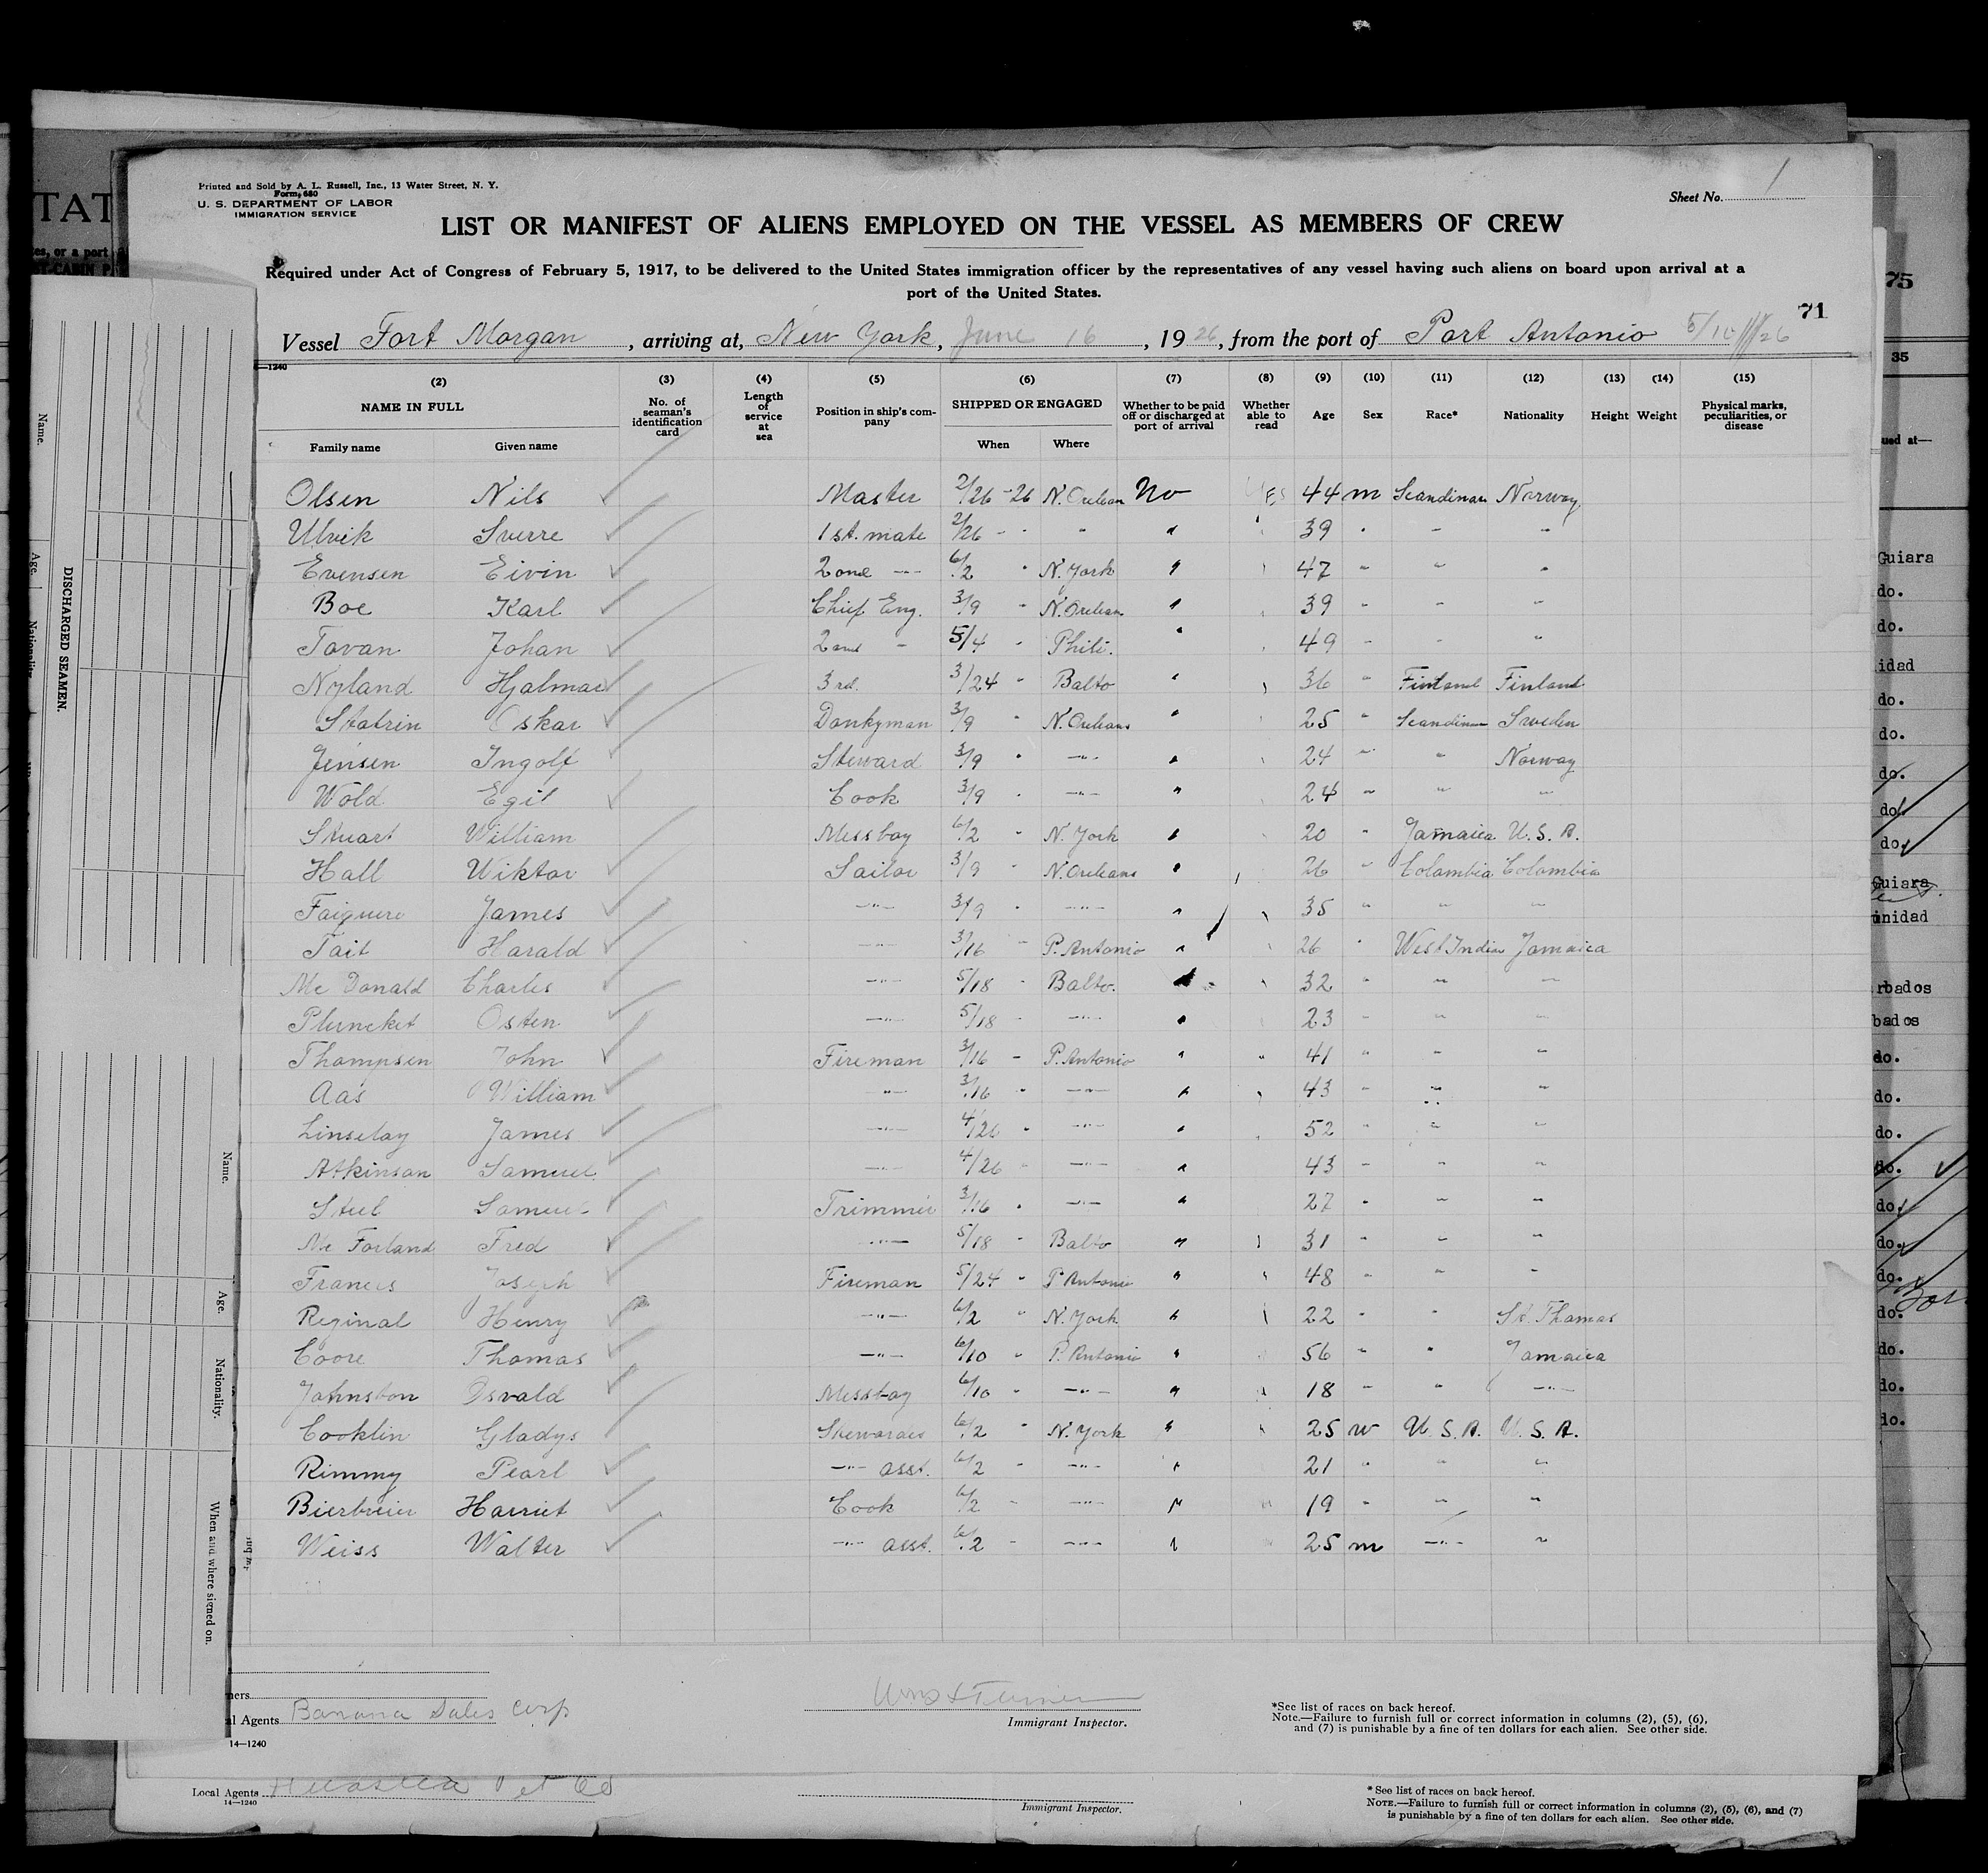 Printed and Sold by A. L. Russell, Inc., 13 Water Street, N. Y.
Form 680
U. S. DEPARTMENT OF LABOR
IMMIGRATION SERVICE
Sheet No. 1
LIST OR MANIFEST OF ALIENS EMPLOYED ON THE VESSEL AS MEMBERS OF CREW
Required under Act of Congress of February 5, 1917, to be delivered to the United States immigration officer by the representatives of any vessel having such aliens on board upon arrival at a
port of the United States.
71
Vessel Fort Morgan, arriving at, New York, June 16, 1926, from the port of Port Antonio
(2) (3) (4) (5) (6) (7) (8) (9) (10) (11) (12) (13) (14) (15)
NAME IN FULL No. of seaman's identification card Length of service at sea Position in ship's company SHIPPED OR ENGAGED Whether to be paid off or discharged at port of arrival Whether able to read Age Sex Race* Nationality Height Weight Physical marks, peculiarities, or disease
Family name Given name When Where
Olsen Nils Master 2/26 -26 N. Orlean No Yes 44 m Scandinav Norway
Ulvik Sverre 1st. mate 2/26 - " " 39 " " "
Evensen Eivin 2ond -"- 6/2 " N. York " 47 " " "
Boe Karl Chief Eng. 3/9 " N. Orlean " 39 " " "
Tavan Johan 2ond - 5/4 " Phili. " 49 " " "
Nyland Hjalmar 3rd. 3/24 " Balto " 36 " Finland Finland
Oskar Donkyman 3/9 " N. Orleans " 25 " Scandinav Sweden
Jensen Ingolf Steward 3/9 " -"- " 24 " " Norway
Wold Egil Cook 3/9 " -"- " 24 " " "
Stuart William Messboy 6/2 " N. York " 20 " Jamaica U. S. A.
Hall Wiktor Sailor 3/9 " N. Orleans " 26 " Colambia Colombia
James -"- 3/9 " -"- " 35 " " "
Tait Harald -"- 3/16 " P. Antonio " 26 " West India Jamaica
Mc Donald Charles -"- 5/18 " Balto. " 32 " " "
Pluncket Osten -"- 5/18 " -"- " 23 " " "
Thompsen John Fireman 3/16 " P. Antonio " 41 " " "
Aas William -"- 3/16 " -"- " 43 " " "
Linsday James -"- 4/26 " -"- " 52 " " "
Atkinson Samuel -"- 4/26 " -"- " 43 " " "
Samuel Trimmer 3/16 " -"- " 27 " " "
Mc Forland Fred -"- 5/18 " Balto " 31 " " "
Francis Joseph Fireman 5/24 " P. Antonio " 48 " " "
Reginal Henry -"- 6/2 " N. York " 22 " " St. Thomas
Coore Thomas -"- 6/10 " P. Antonio " 56 " " Jamaica
Johnston Osvald Messboy 6/10 " -"- " 18 " " -"-
Cooklin Gladys Stewardes 6/2 " N. York " 25 w U. S. A. U. S. A.
Rimmy Pearl -"- asst. 6/2 " -"- " 21 " " "
Harriet Cook 6/2 " -"- " 19 " " "
Weiss Walter -"- asst. 6/2 " -"- " 25 m -"- "
ners
al Agents Banana Sales Corp
Immigrant Inspector.
*See list of races on back hereof.
Note.—Failure to furnish full or correct information in columns (2), (5), (6),
and (7) is punishable by a fine of ten dollars for each alien. See other side.
14—1240
Local Agents Huasteca Pet Co
14—1240
Immigrant Inspector.
* See list of races on back hereof.
NOTE.—Failure to furnish full or correct information in columns (2), (5), (6), and (7)
is punishable by a fine of ten dollars for each alien. See other side.
DISCHARGED SEAMEN.
Name.
Age.
Nationality.
Name.
Age.
Nationality.
When and where signed on.
TAT
es, or a port
75
35
ued at—
Guiara
do.
do.
idad
do.
do.
do.
do.
do.
Guiara
inidad
rbados
bados
do.
do.
do.
do.
do.
do.
do.
do.
do.
do.
do.